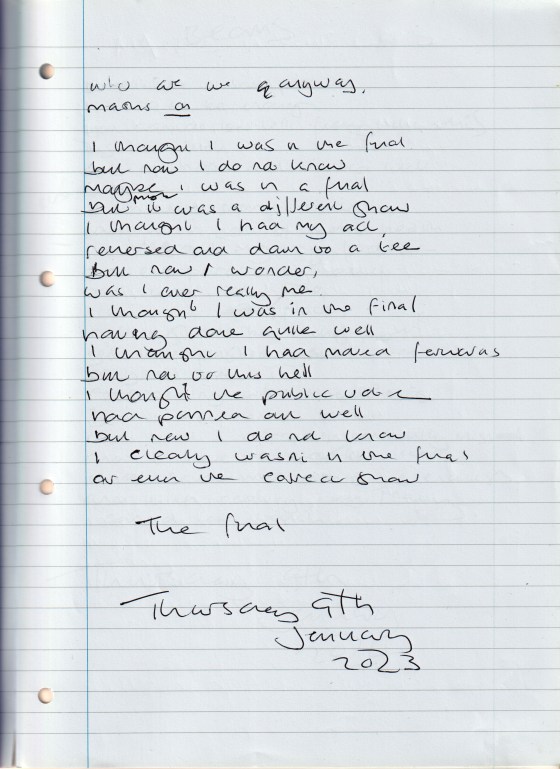 who are we anyway,
masks on
I thought I was in the final
but now I do not know
maybe I was in a final
now
but it was a different show
I thought I had my act,
rehersed and down to a tee
but now I wonder,
was I ever really me
I thought I was in the final
having done quite well
I thought I had moved forwards
but not to this hell
I thought the public vote
had panned out well
but now I do not know
I clearly wasn't in the final
or even the correct show
The final
Thursday 9th
January
2023